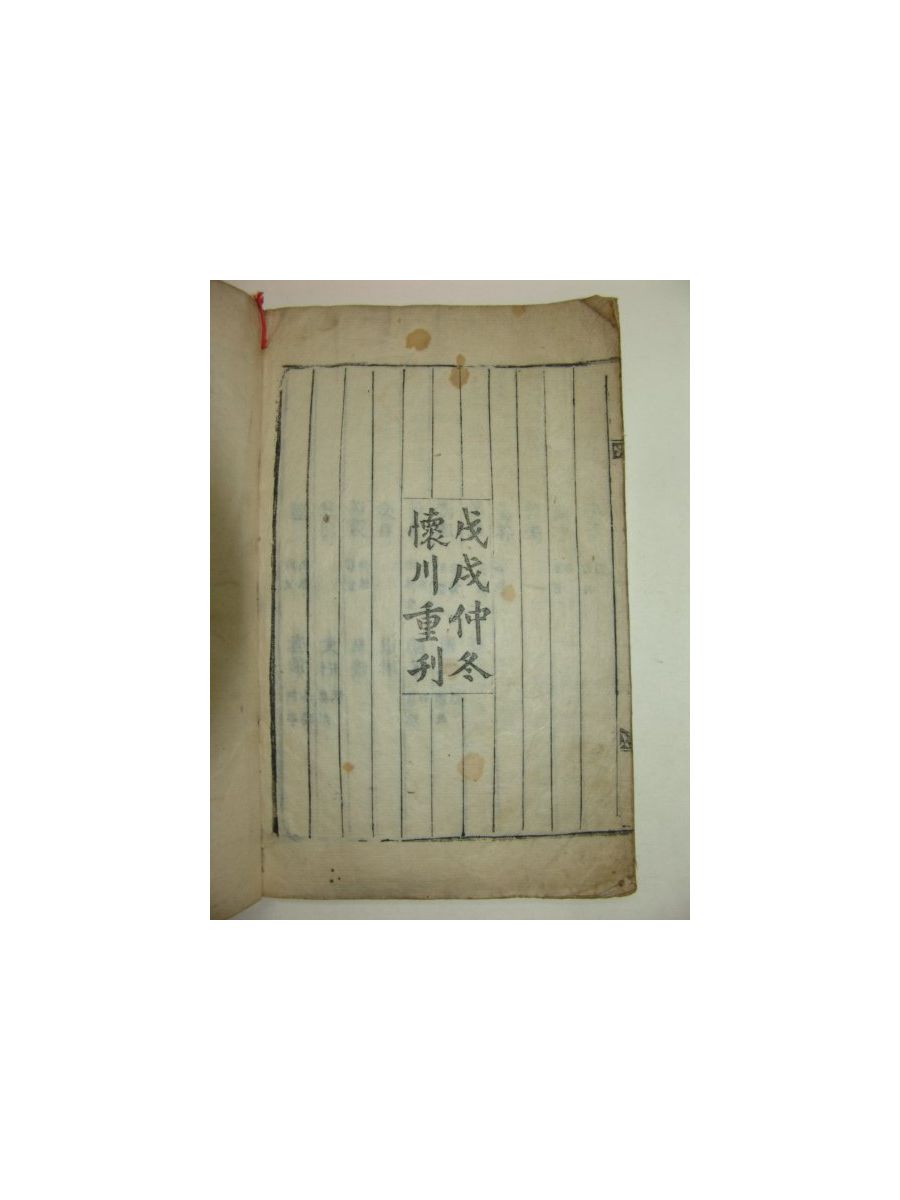 戊戌仲冬
懷川重刋